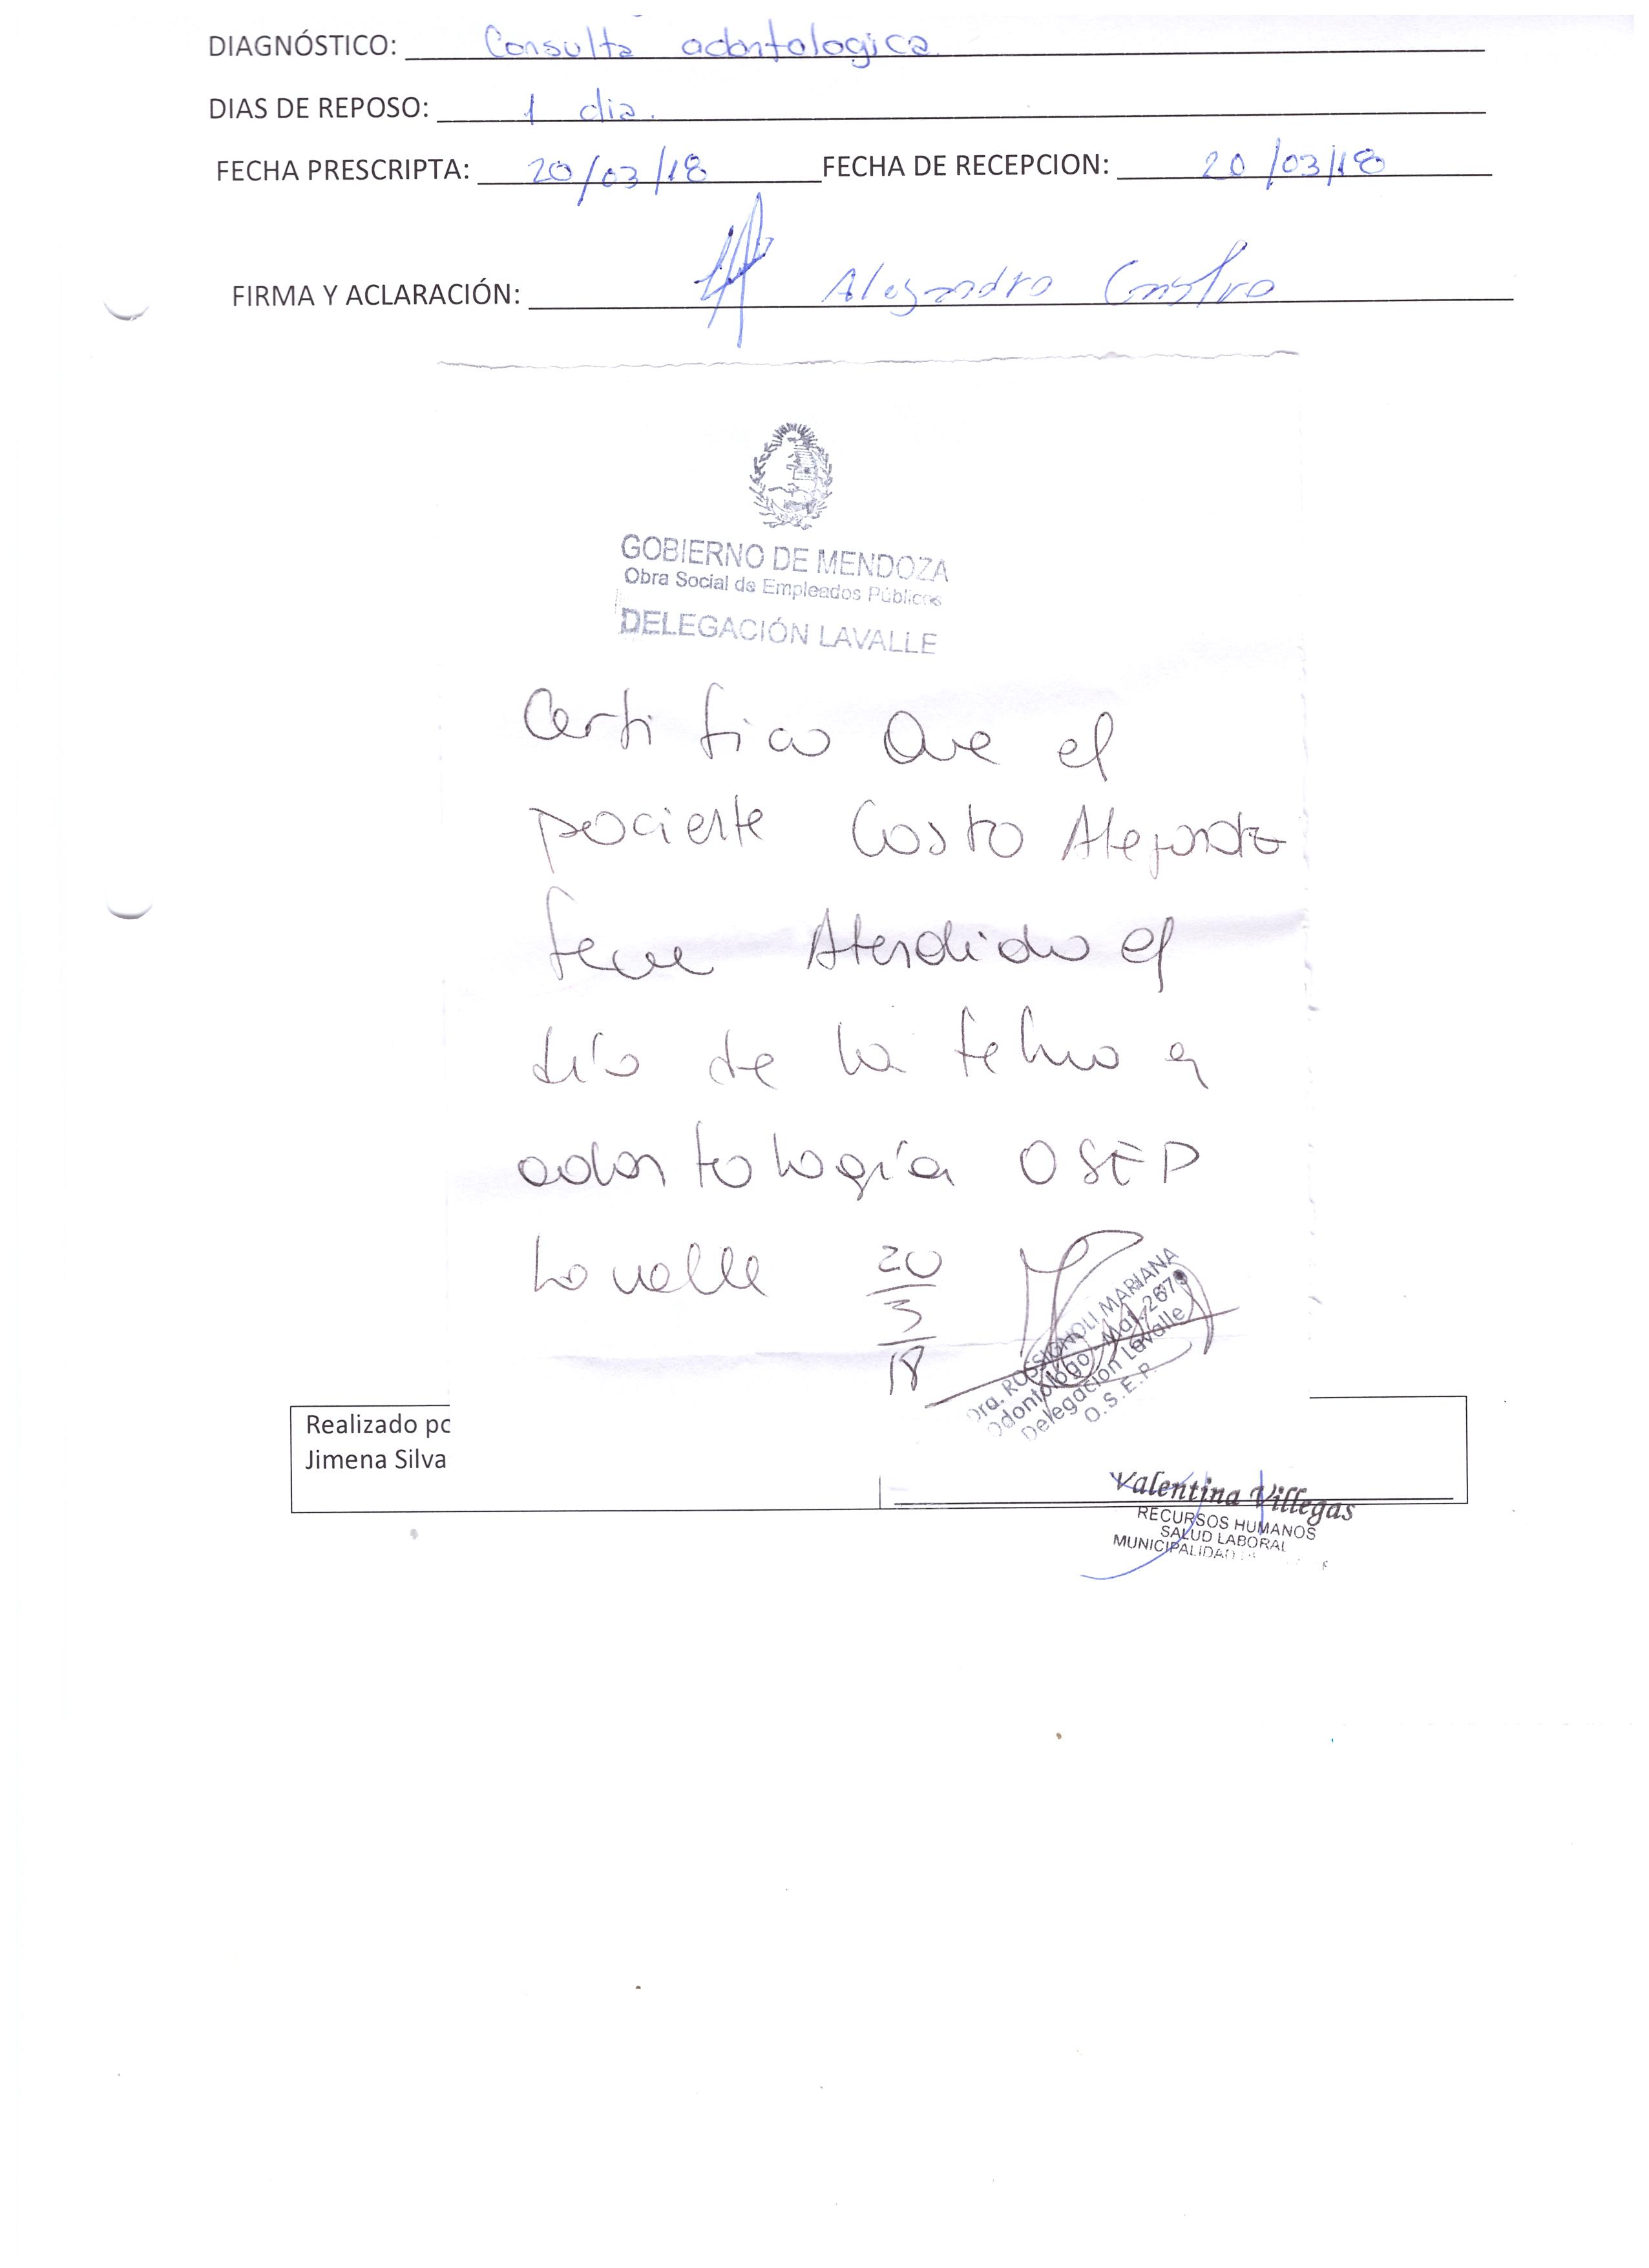 DIAGNÓSTICO: Consulta odontologica
DIAS DE REPOSO: 1 dia.
FECHA PRESCRIPTA: 20/03/18 FECHA DE RECEPCION: 20/03/18
FIRMA Y ACLARACIÓN: Alejandro Castro
GOBIERNO DE MENDOZA
Obra Social de Empleados Públicos
DELEGACIÓN LAVALLE
Certifico Que el
paciente Castro Alejandro
Atendido el
día de la fecha en
odontología OSEP
Lavalle 20/3/18
Dra. ROSSIGNOLI MARIANA
Odontólogo - Mat. 267
Delegación Lavalle
O.S.E.P.
Realizado po
Jimena Silva
Valentina Villegas
RECURSOS HUMANOS
SALUD LABORAL
MUNICIPALIDAD